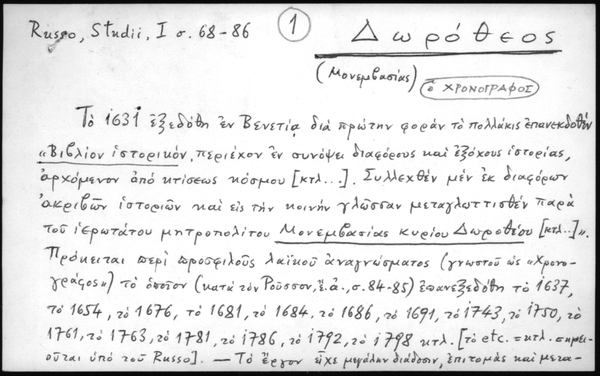 Russo, Studii, I σ. 68-86
1
Δωρόθεος
(Μονεμβασίας)
ὁ ΧΡΟΝΟΓΡΑΦΟΣ
Τὸ 1631 ἐξεδόθη ἐν Βενετίᾳ διὰ πρώτην φορὰν τὸ πολλάκις ἐπανεκδοθὲν
«Βιβλίον ἱστορικόν, περιέχον ἐν συνόψει διαφόρους καὶ ἐξόχους ἱστορίας,
ἀρχόμενον ἀπὸ κτίσεως κόσμου [κτλ...]. Συλλεχθὲν μὲν ἐκ διαφόρων
ἀκριβῶν ἱστοριῶν καὶ εἰς τὴν κοινὴν γλῶσσαν μεταγλωττισθὲν παρὰ
τοῦ ἱερωτάτου μητροπολίτου Μονεμβασίας κυρίου Δωροθέου [κτλ...]».
Πρόκειται περὶ προσφιλοῦς λαϊκοῦ ἀναγνώσματος (γνωστοῦ ὡς «Χρονο-
γράφος») τὸ ὁποῖον (κατὰ τὸν Ροῦσσον, ἔ.ἀ., σ. 84-85) ἐπανεξεδόθη τὸ 1637,
τὸ 1654, τὸ 1676, τὸ 1681, τὸ 1684, τὸ 1686, τὸ 1691, τὸ 1743, τὸ 1750, τὸ
1761, τὸ 1763, τὸ 1781, τὸ 1786, τὸ 1792, τὸ 1798 κτλ. [τὸ etc. = κτλ. σημει-
οῦται ὑπὸ τοῦ Russo]. — Τὸ ἔργον εἶχε μεγάλην διάδοσιν, ἐπιτομὰς καὶ μετα-